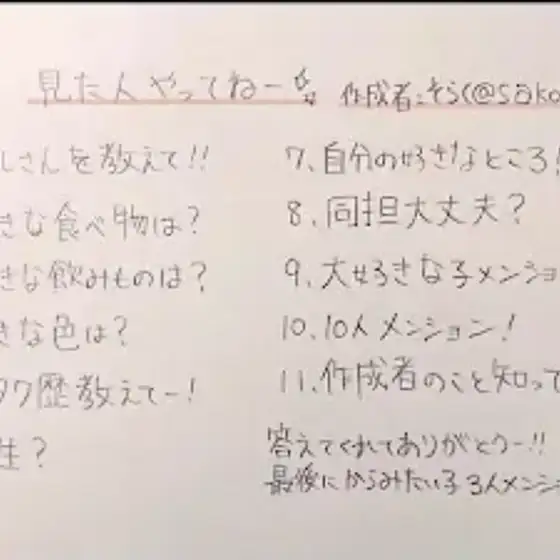 見た人やってねー
作成者:そらく@sako
しさんを教えて!!
きな食べ物は?
きな飲みものは?
きな色は?
タク歴教えてー!
性?
7、自分の好きなところ!
8、同担大丈夫?
9、大好きな子メンショ
10、10人メンション!
11、作成者のこと知って
答えてくれてありがとうー!!
最後にからみたい子3人メンショ